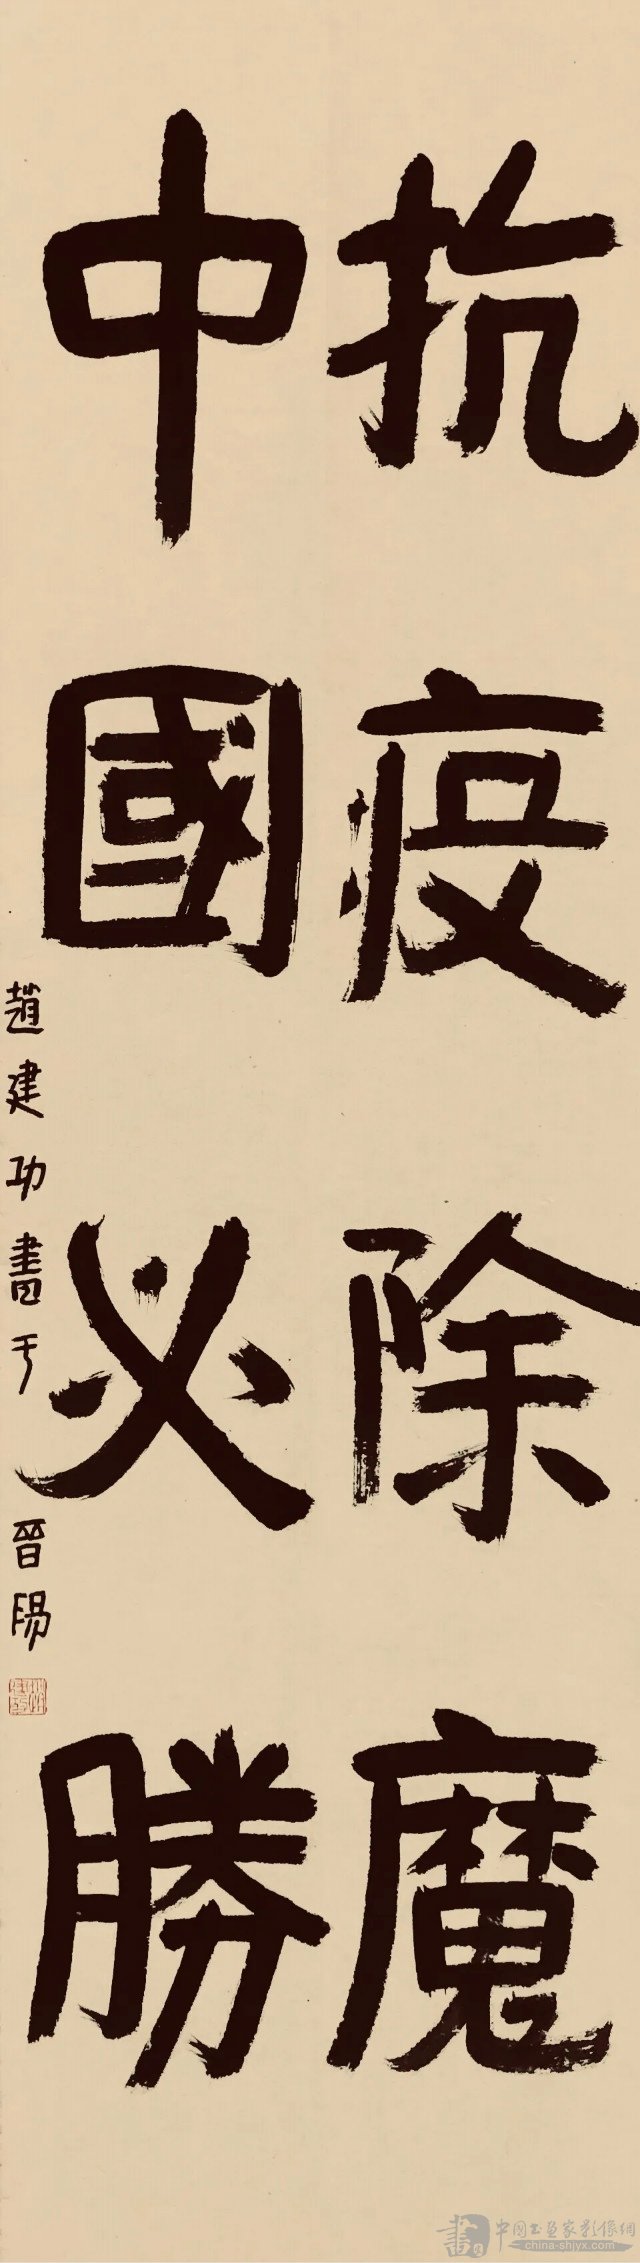 抗疫除魔
中國必勝
趙建功書于晉陽
書 中國书画家影像網
china-shjyx.com